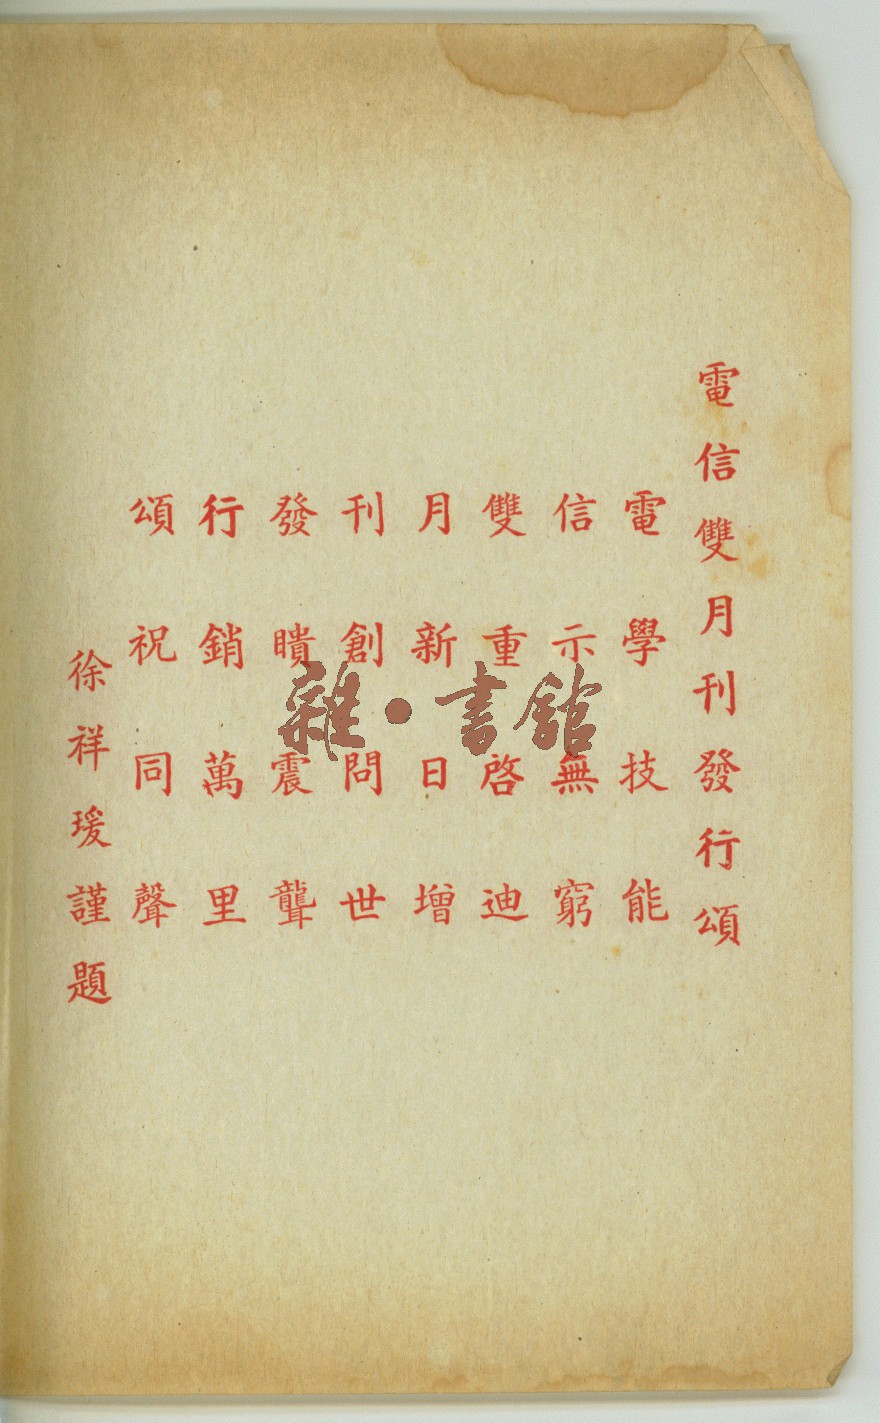 電信雙月刊發行頌
電學技能
信示無窮
雙重啓迪
月新日增
刊創問世
發聵震聾
行銷萬里
頌祝同聲
徐祥瑗謹題
雜·書館